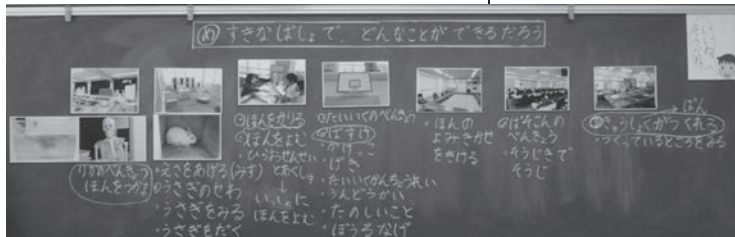 め すきなばしょで、どんなことができるだろう
りかのべんきょう
ほんをつかう
・えさをあげる(みず)
うさぎのせわ
・うさぎをみる
・うさぎをだく
ほんをかりる
えほんをよむ
・ひらおせんせい
とあくしゅ
↓
いっしょに
ほんをよむ
たいいくのべんきょう
ばすけ
・げき
・たいいくかんちょうれい
・うんどうかい
・たのしいこと
・ぼうるなげ
・ほんの
よみきかせ
をきける
ぱそこんの
べんきょう
・そうじきで
そうじ
→ぱん
きゅうしょくがつくれる
・つくっているところをみる